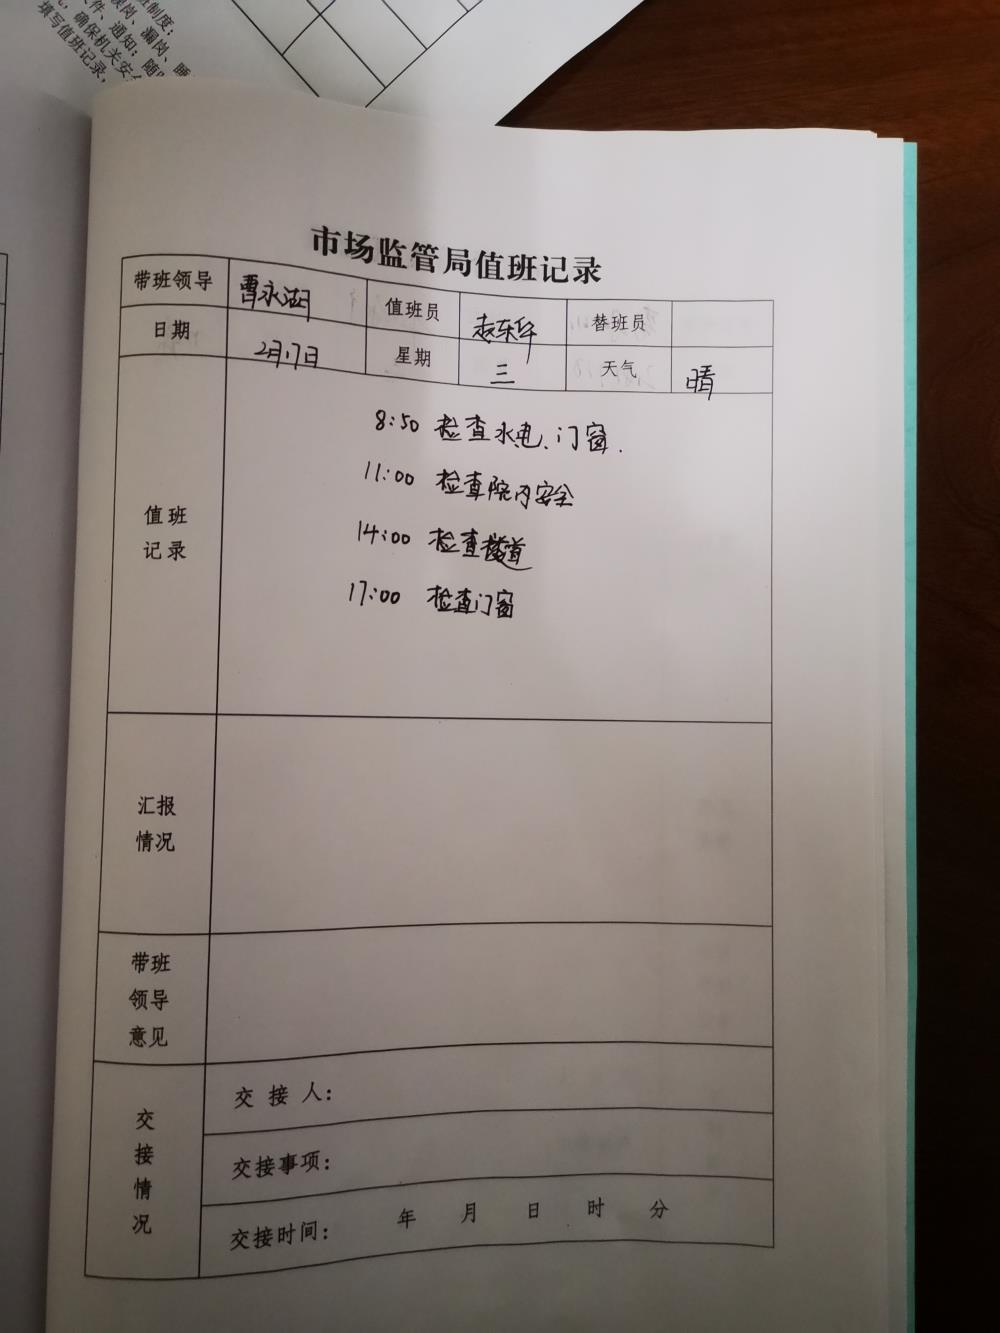 市场监管局值班记录
带班领导 曹永湖 值班员 赵东华 替班员
日期 2月17日 星期 三 天气 晴
值班
记录
8:50 检查水电、门窗.
11:00 检查院内安全
14:00 检查楼道
17:00 检查门窗
汇报
情况
带班
领导
意见
交
接
情
况
交 接 人:
交接事项:
交接时间: 年 月 日 时 分